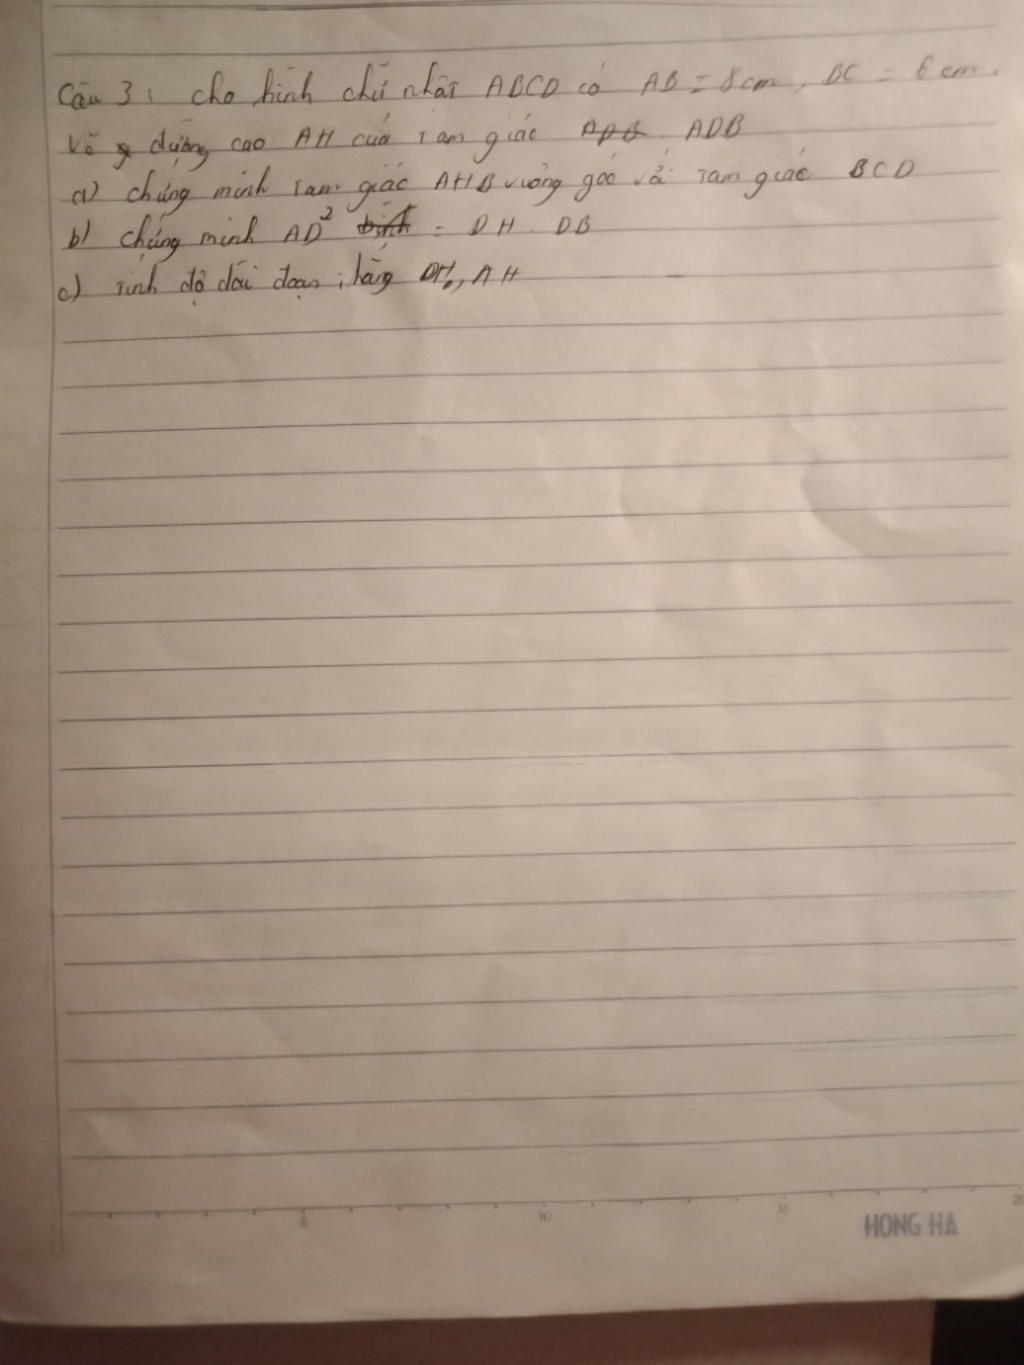 Câu 3: cho hình chữ nhật ABCD có AB = 8cm, BC = 6cm.
Vẽ đường cao AH của tam giác ADB
a) chứng minh tam giác AHB vuông góc với tam giác BCD
b) chứng minh AD² = DH. DB
c) tính độ dài đoạn thẳng DH, AH
5 10 15 20
HONG HA